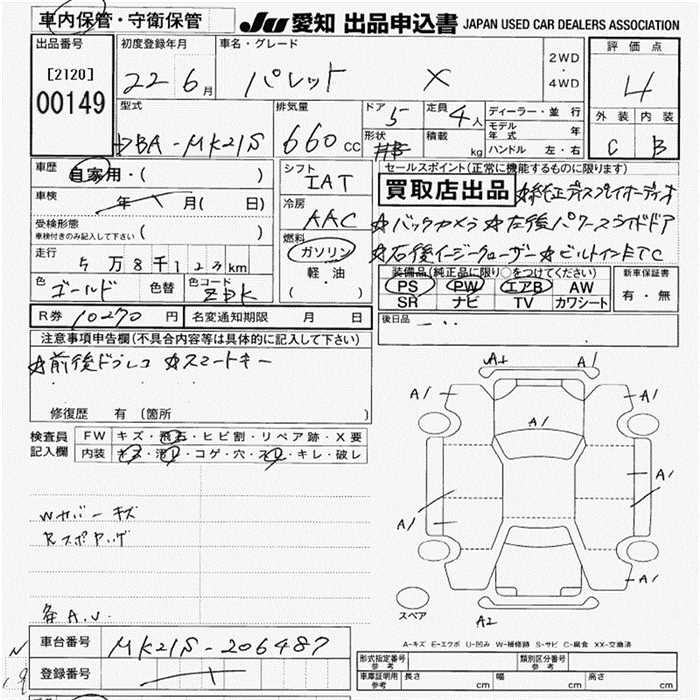 車内保管・守衛保管
JU 愛知 出品申込書 JAPAN USED CAR DEALERS ASSOCIATION
出品番号
[2120]
00149
初度登録年月
22 6月
車名・グレード
パレット X
2WD
・
4WD
評価点
4
外装 内装
C B
型式
DBA-MK21S
排気量
660cc
ドア 5
定員 4人
形状
積載 kg
ディーラー・並行
モデル年式 年
ハンドル 左・右
車歴
自家用・( )
車検
年 月( 日)
受検形態
車検付きのみ記入して下さい ( )
走行
5万8千123km
色 ゴールド 色替 色コード ZDK
シフト
IAT
冷房
AAC
燃料
ガソリン
・
軽油
・
( )
セールスポイント(正常に機能するものに限ります)
買取店出品 ☆純正ディスプレイオーディオ
☆バックカメラ ☆左後パワースライドドア
☆右後イージークローザー ☆ビルトインETC
装備品(純正品に限り○をつけてください)
PS PW エアB AW
SR ナビ TV カワシート
新車保証書
有・無
R券 10270円 名変通知期限 月 日
後日品
注意事項申告欄(不具合内容等は具体的に記入して下さい)
☆前後ドラレコ ☆スマートキー
修復歴 有 (箇所 )
検査員記入欄
FW キズ・飛石・ヒビ割・リペア跡・X要
内装 キズ・汚レ・コゲ・穴・スレ・キレ・破レ
Wカバーキズ
Rスポヤケ
A.U.
A1 A1
A1 A1
A1
A1
A1
A1
A2
スペア
A-キズ E-エクボ U-凹み W-補修跡 S-サビ C-腐食 XX-交換済
車台番号 MK21S-206487
登録番号
形式指定番号 参考
類別区分番号 参考
車庫証明用 参考 長さ cm 幅 cm 高さ cm